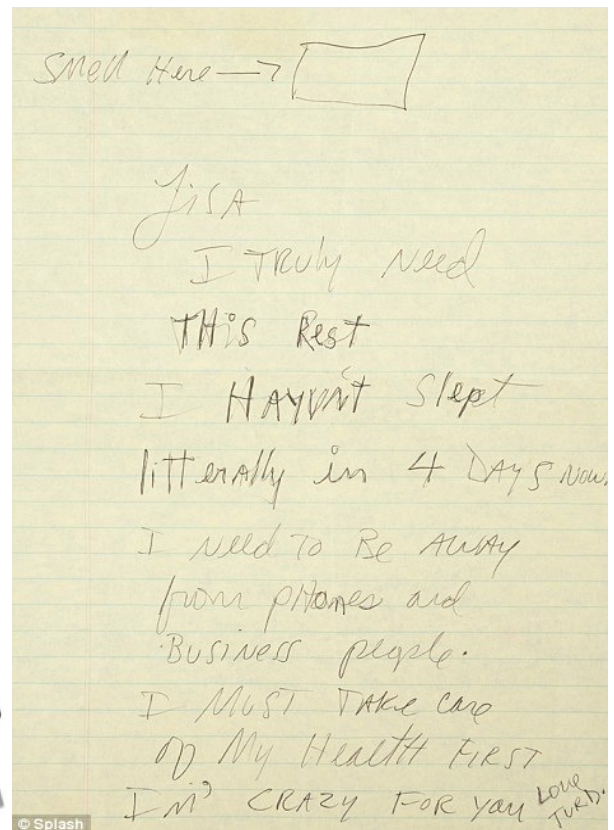 Smell Here →
Lisa
I TRuly Need
THis Rest
I HAVVNt Slept
litterally in 4 DAYS Now.
I Need To Be AWAY
from pHones and
Business people.
I MUST TAKe care
of My HealtH FIRST
I'm CRAZY FOR you Love
TURD.
© Splash